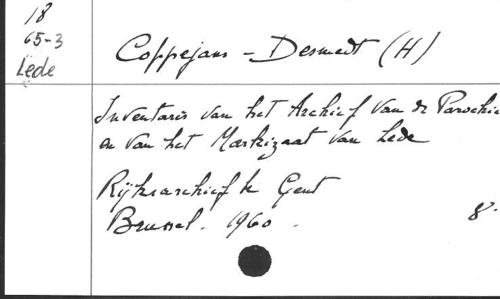 18
65-3
Lede
Coppejans - Desmedt (H)
Inventaris van het Archief van de Parochie
en van het Markizaat van Lede
Rijksarchief te Gent
Brussel. 1960.
8°